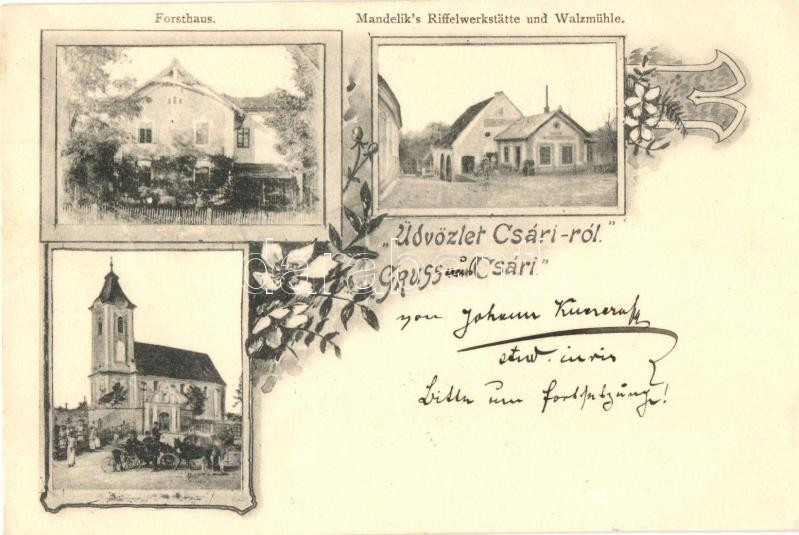 Forsthaus.
Mandelik's Riffelwerkstätte und Walzmühle.
„Üdvözlet Csári-ról."
„Gruss aus Csári."
von Johann
Bitte um Fortsetzung!